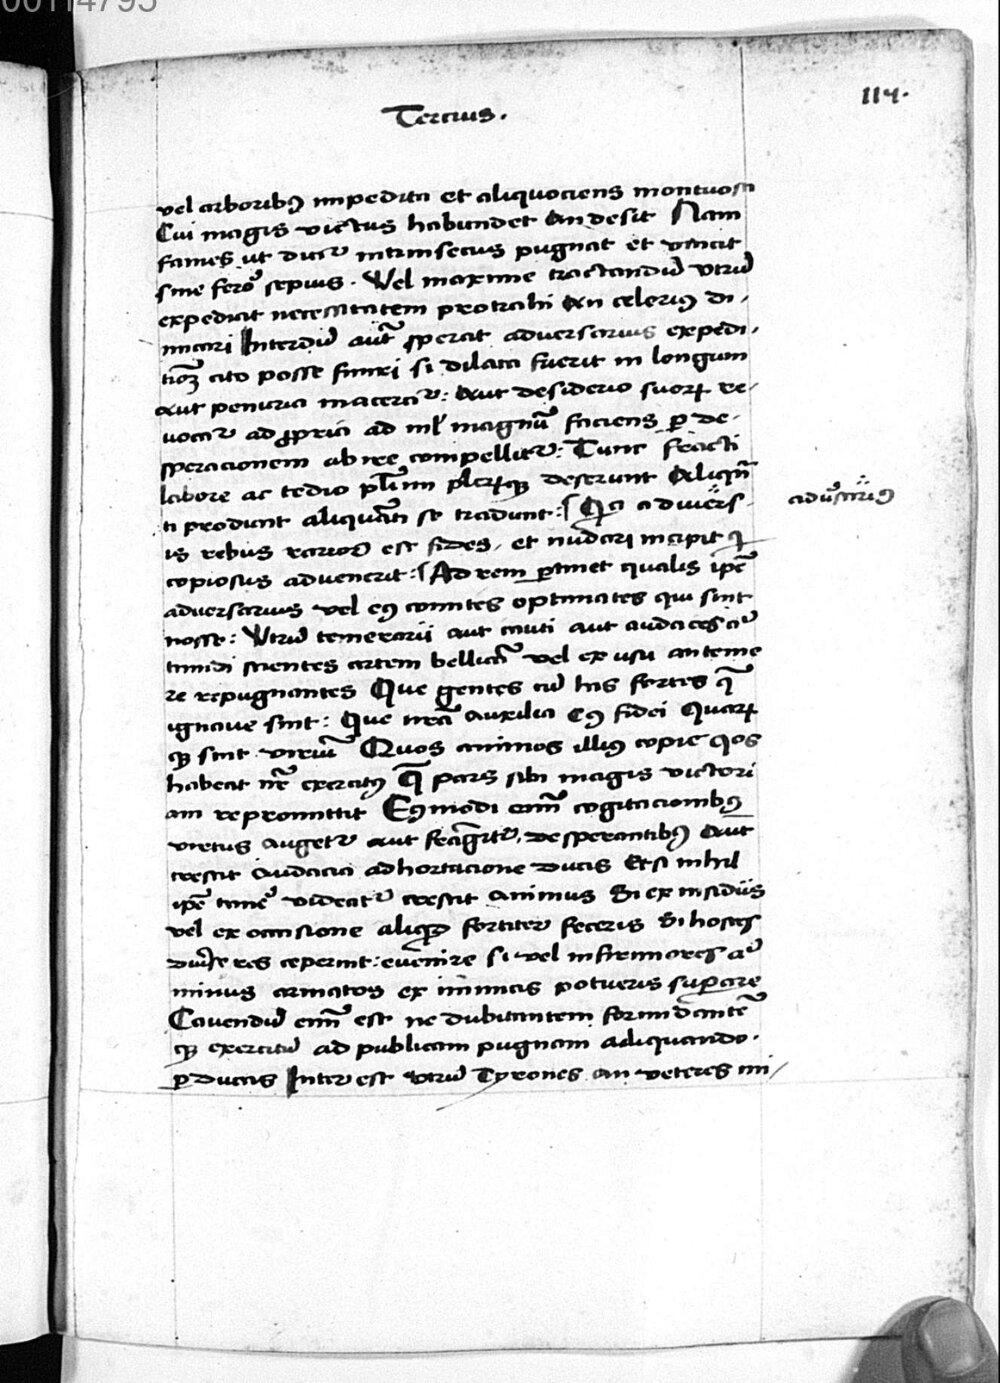 00114795
114.
Tercius.
vel arboribꝰ impedita et aliquociens montuosa
Cui magis victus habundet an desit Nam
fames ut dicitᷣ intrinsecus pugnat et vincit
sine ferro sepius. Vel maxime tractandū vtrū
expediat necessitatem protrahi an celeriꝰ di-
micari Interdū aūt sperat adversarius expedi-
tionē cito posse finiri si dilata fuerit in longum
aut penuria maceratᷣ: aut desiderio suorꝝ re-
vocatᷣ ad ꝓpria ad nl̄ magnū faciens ꝑ de-
speracionem abire compellitᷣ: Tunc fracti
labore ac tedio pl̄imi pleriqꝫ deserunt Aliqn̄
ti produnt aliquāti se tradunt: Qa adūers-
is rebus rarior est fides, et nudari incipit q̄
copiosus advenerit: Ad rem ꝑtinet qualis ipē
adversarius vel eiꝰ comites optimates qui sint
nosse: Vtrū temerarii aut cauti aut audaces aū
timidi scientes artem bellicā vel ex usu an teme
re repugnantes Que gentes cū his fortes q̄
ignaue sint: Que nr̄a auxilia Cꝰ fidei Quarꝝ
qꝫ sint viriū Quos animos illiꝰ copie qos
habeat nr̄ exercitꝰ Q̄ pars sibi magis victori
am repromittit Eiꝰmodi enī cogitacionibꝰ
virtus augetᷣ aut frāgitᷣ, desperantibꝰ aut
crescit audacia adhortacione ducis Et si nihil
ipē timē videatᷣ crescit animus Si ex insidiis
vel ex occasione aliqd fortiter feceris Si hostes
diūse res ceperint: evenire si vel infirmiores aū
minus armatos ex inimicis potueris suꝑare
Cavendū enī est ne dubitantem formidantē
qꝫ exercitū ad publicam pugnam aliquando.
ꝑducas Interest vtrū Tyrones an veteres mi-
adūsariꝰ